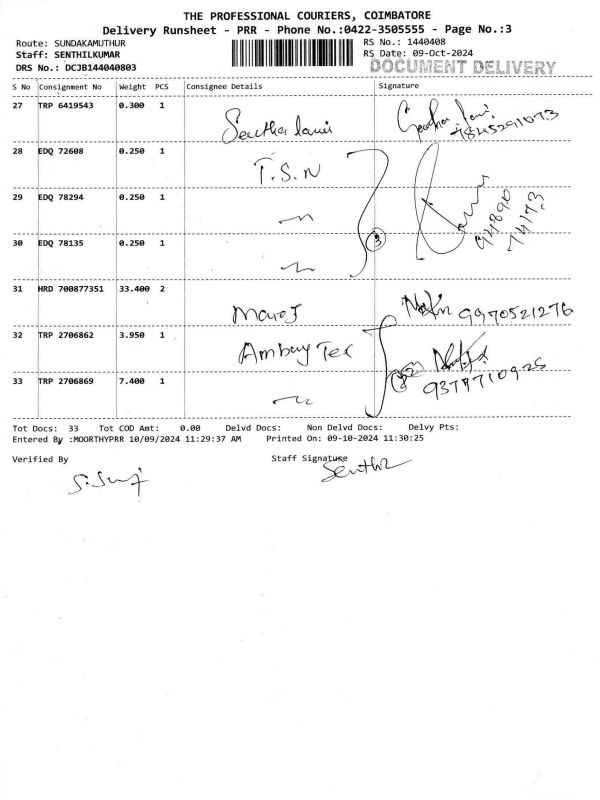 THE PROFESSIONAL COURIERS, COIMBATORE
Delivery Runsheet - PRR - Phone No.:0422-3505555 - Page No.:3
Route: SUNDAKAMUTHUR RS No.: 1440408
Staff: SENTHILKUMAR RS Date: 09-Oct-2024
DRS No.: DCJB144040803 DOCUMENT DELIVERY
S No Consignment No Weight PCS Consignee Details Signature
27 TRP 6419543 0.300 1
28 EDQ 72608 0.250 1 T.S.N
29 EDQ 78294 0.250 1
94890
74173
30 EDQ 78135 0.250 1 3
31 HRD 700877351 33.400 2 Manoj 9970521276
32 TRP 2706862 3.950 1 Ambay Tex
33 TRP 2706869 7.400 1
Tot Docs: 33 Tot COD Amt: 0.00 Delvd Docs: Non Delvd Docs: Delvy Pts:
Entered By :MOORTHYPRR 10/09/2024 11:29:37 AM Printed On: 09-10-2024 11:30:25
Verified By Staff Signature